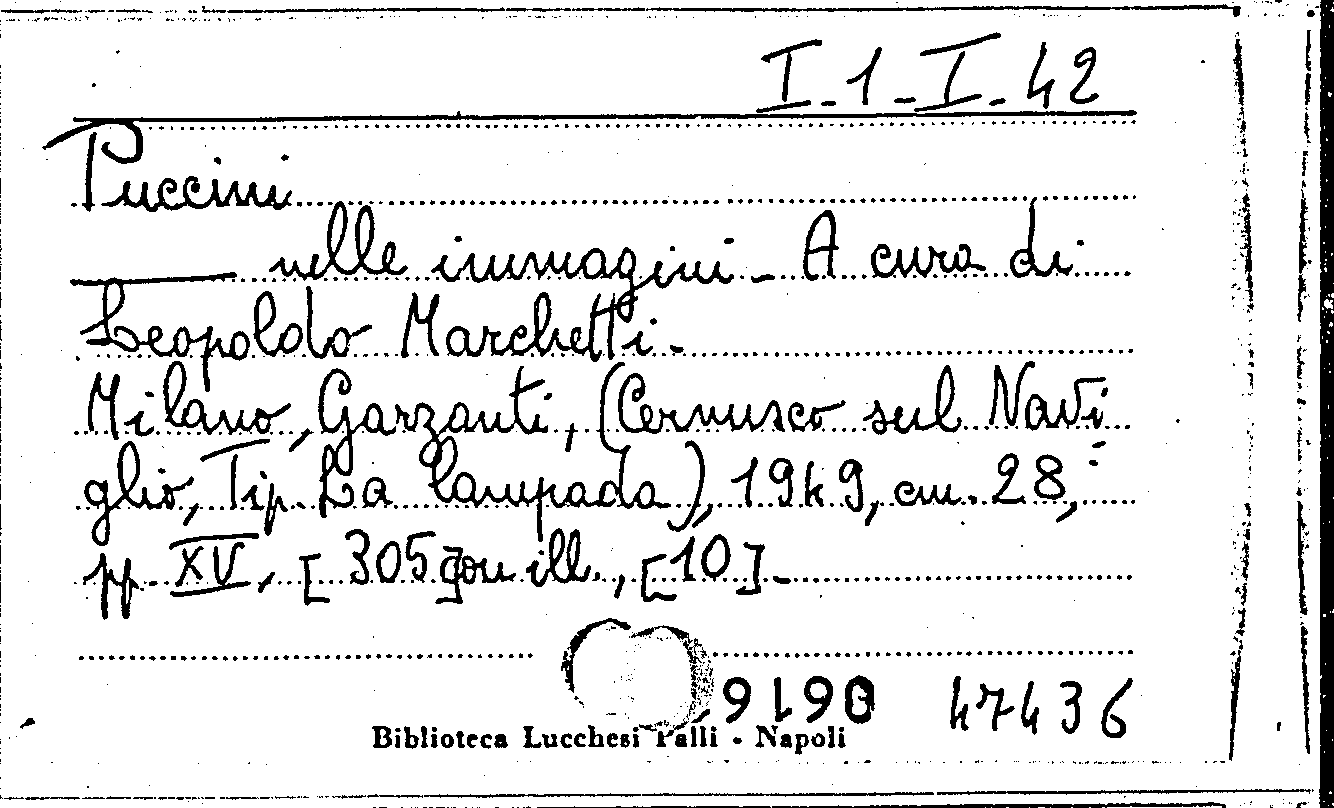 I-1-I-42
Puccini
——— nelle immagini - A cura di
Leopoldo Marchetti.
Milano, Garzanti, (Cernusco sul Navi
glio, Tip. La lampada), 1949, cm. 28,
pp. XV, [305] con ill., [10].
47436
Biblioteca Lucchesi Palli - Napoli